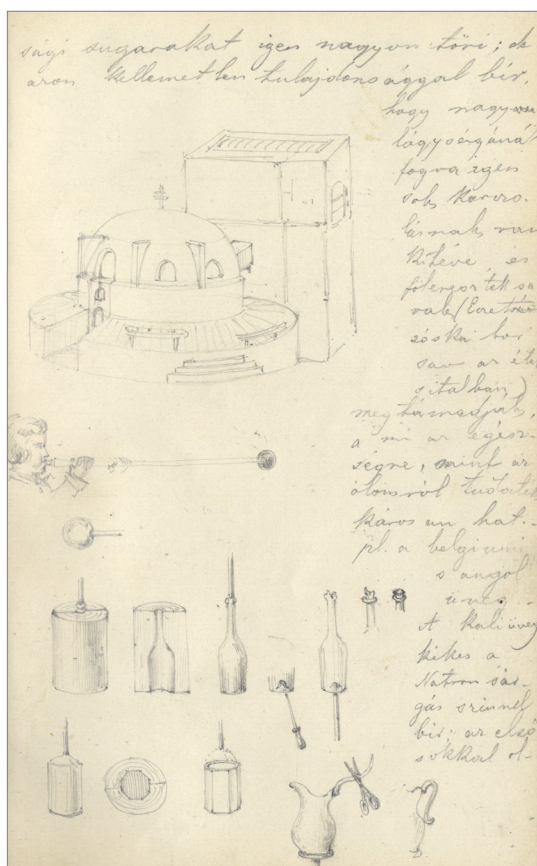 sági sugarakat igen nagyon töri; de
azon kellemetlen tulajdonsággal bir,
hogy nagyon
lágyságánál
fogva igen
sok karczo-
lásnak van
kitéve és
sa
vak
sav az éte
s italban)
megtámadják,
a mi az egész-
ségre, mint az
ólomról tudatik
káros an hat.-
pl. a belgiumi
s angol
üveg.-
A kaliüveg
kékes a
Natron sár-
gás szinnel
bir; az első
sokkal ol-